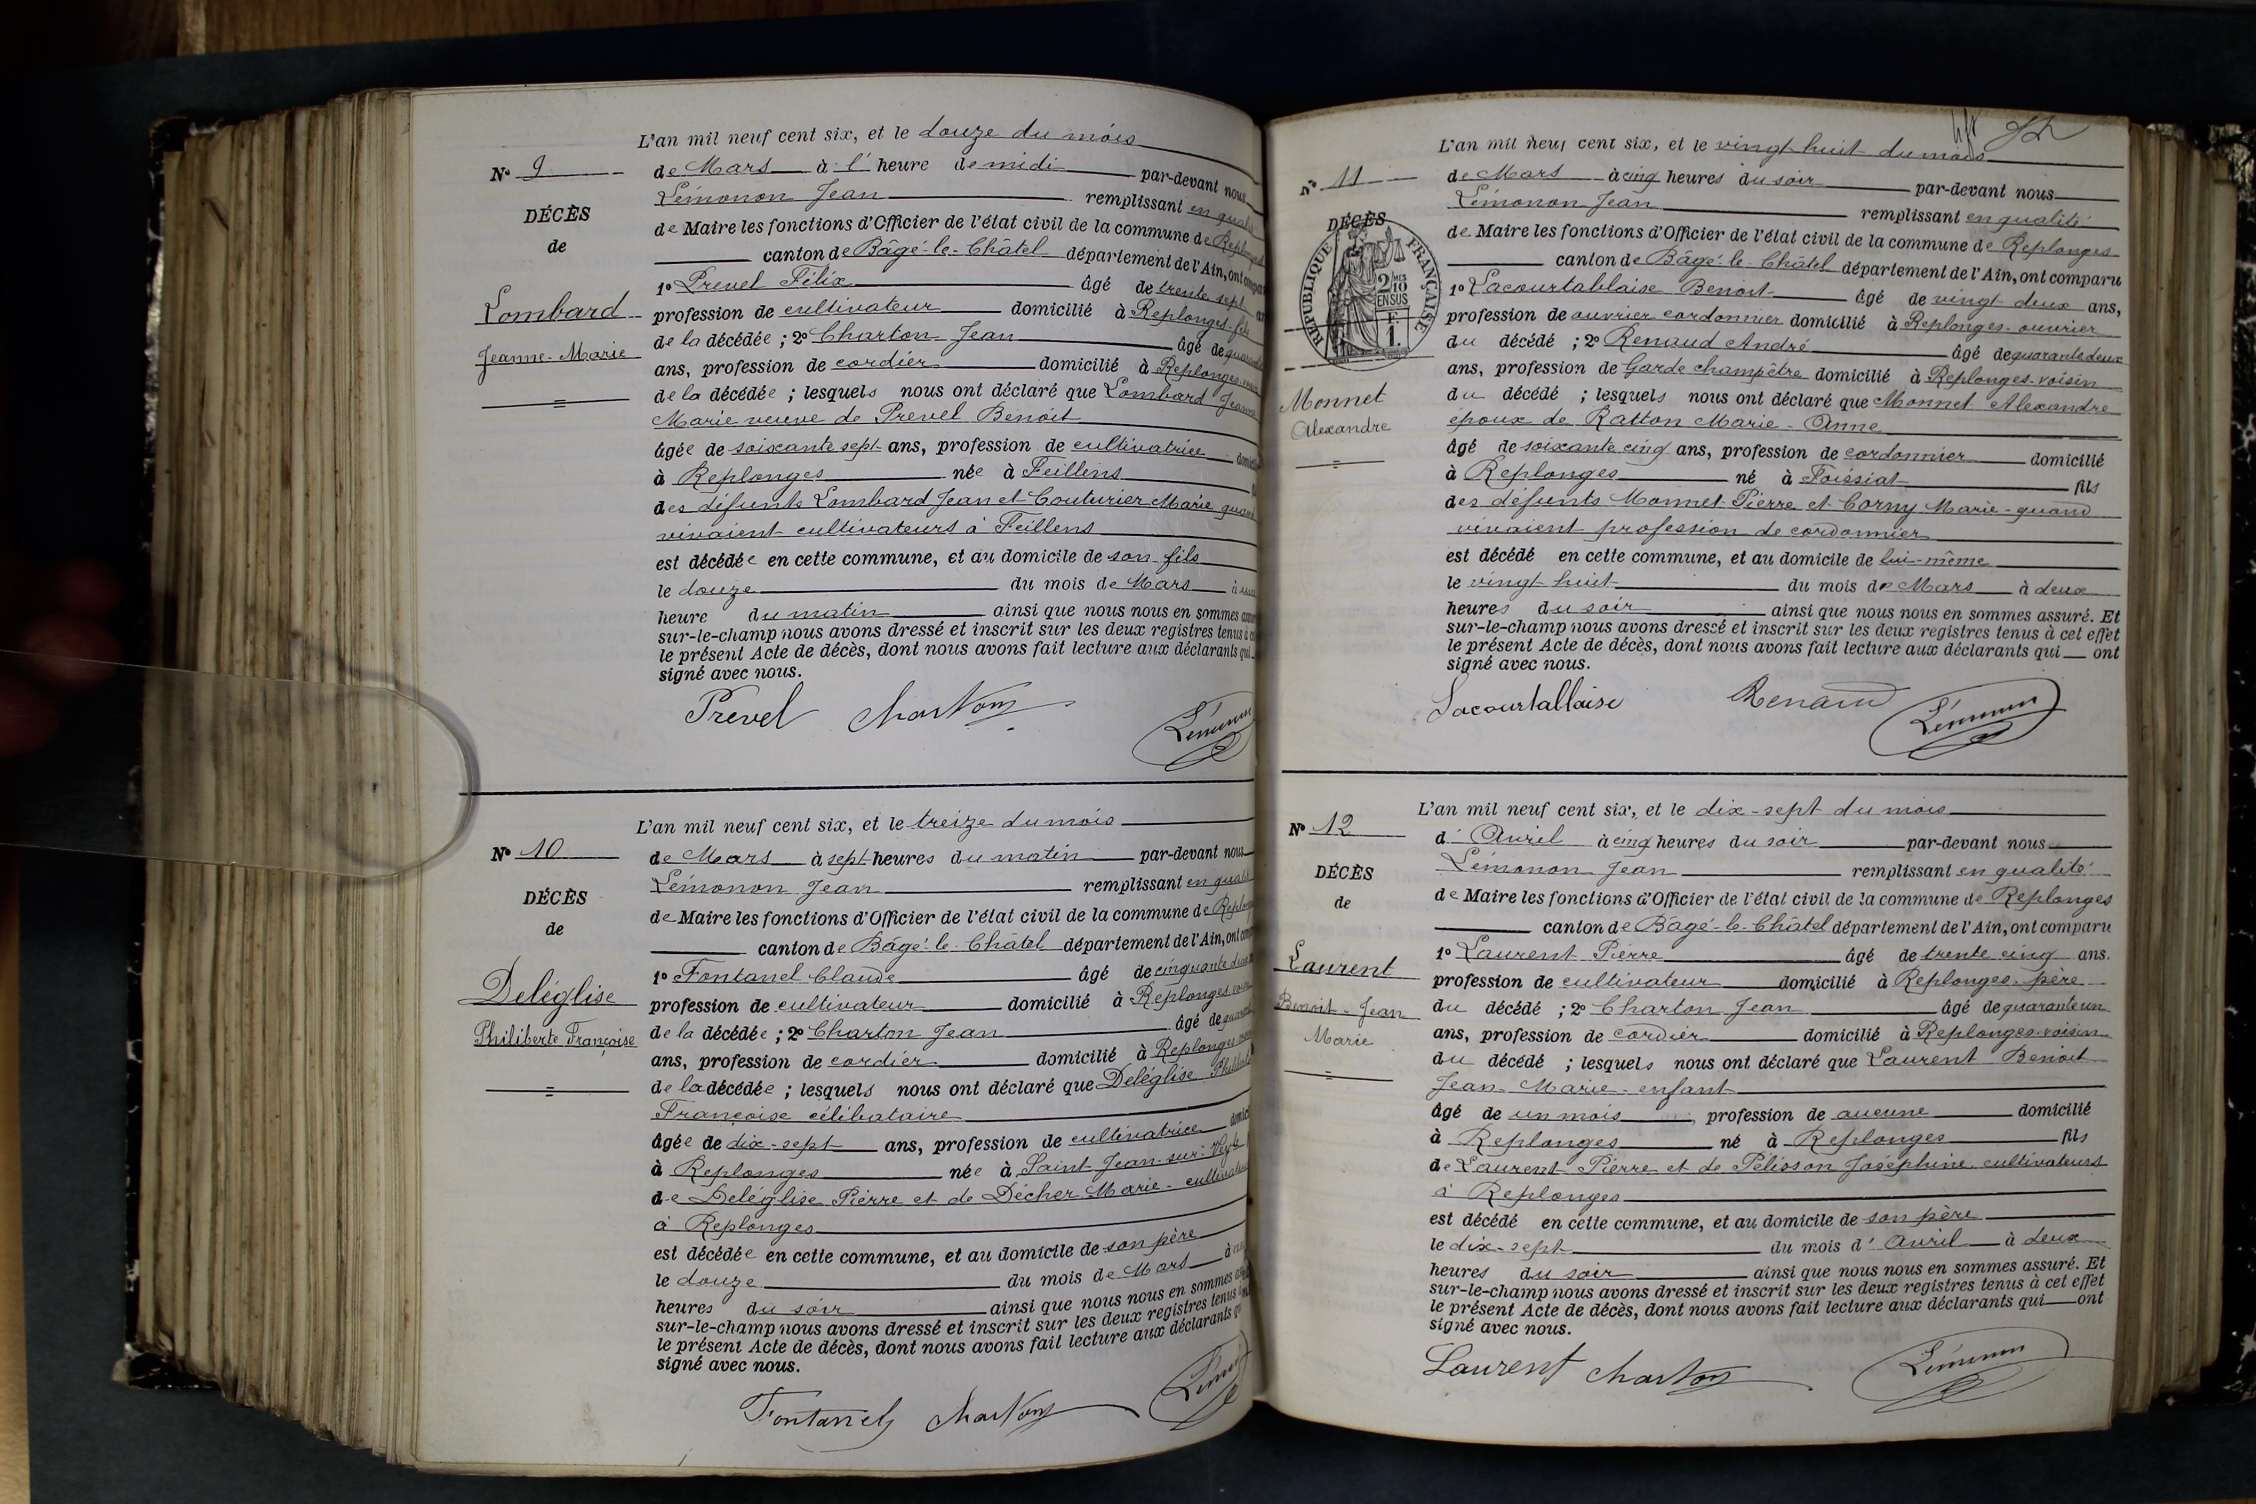 L'an mil neuf cent six, et le douze du mois
N° 9
de Mars à l' heure de midi par-devant nous
Lémonon Jean remplissant en
DÉCÈS
de Maire les fonctions d'Officier de l'état civil de la commune de
de
canton de Bâgé-le-Châtel département de l'Ain, ont
1° Prevel Félix âgé de trente sept
Lombard
profession de cultivateur domicilié à Replonges fils
Jeanne-Marie
de la décédée ; 2° Charton Jean âgé de
ans, profession de cordier domicilié à Replonges
de la décédée ; lesquels nous ont déclaré que Lombard Jeanne
Marie veuve de Prevel Benoit
âgée de soixante sept ans, profession de cultivatrice
à Replonges née à Feillens
des défunts Lombard Jean et Couturier Marie quand
vivaient cultivateurs à Feillens
est décédée en cette commune, et au domicile de son fils
le douze du mois de Mars à
heure du matin ainsi que nous nous en sommes
sur-le-champ nous avons dressé et inscrit sur les deux registres tenus à
le présent Acte de décès, dont nous avons fait lecture aux déclarants qui
signé avec nous.
Prevel Charton Lémonon
L'an mil neuf cent six, et le treize du mois
N° 10
de Mars à sept heures du matin par-devant nous
Lémonon Jean remplissant en
DÉCÈS
de Maire les fonctions d'Officier de l'état civil de la commune de
de
canton de Bâgé-le-Châtel département de l'Ain, ont
1° Fontanel Claude âgé de cinquante
Deléglise
profession de cultivateur domicilié à Replonges
Philiberte Françoise
de la décédée ; 2° Charton Jean âgé de
ans, profession de cordier domicilié à Replonges
de la décédée ; lesquels nous ont déclaré que Deléglise
Françoise célibataire
âgée de dix-sept ans, profession de cultivatrice
à Replonges née à Saint-Jean-sur-Veyle
de Deléglise Pierre et de Décher Marie-
à Replonges
est décédée en cette commune, et au domicile de son père
le douze du mois de Mars à
heures du soir ainsi que nous nous en sommes
sur-le-champ nous avons dressé et inscrit sur les deux registres tenus
le présent Acte de décès, dont nous avons fait lecture aux déclarants
signé avec nous.
Fontanel Charton
L'an mil neuf cent six, et le vingt huit du mois
N° 11
de Mars à cinq heures du soir par-devant nous
Lémonon Jean remplissant en qualité
DÉCÈS
de Maire les fonctions d'Officier de l'état civil de la commune de Replonges
RÉPUBLIQUE FRANÇAISE
2/10 EN SUS
F. 1.
canton de Bâgé-le-Châtel département de l'Ain, ont comparu
1° Lacourtablaise Benoit âgé de vingt deux ans,
profession de ouvrier cordonnier domicilié à Replonges-ouvrier
du décédé ; 2° Renaud André âgé de quarante deux
ans, profession de Garde champêtre domicilié à Replonges-voisin
Monnet
Alexandre
du décédé ; lesquels nous ont déclaré que Monnet Alexandre
époux de Ratton Marie-Anne
âgé de soixante cinq ans, profession de cordonnier domicilié
à Replonges né à Foissiat fils
des défunts Monnet Pierre et Corny Marie-quand
vivaient profession de cordonnier
est décédé en cette commune, et au domicile de lui-même
le vingt huit du mois de Mars à deux
heures du soir ainsi que nous nous en sommes assuré. Et
sur-le-champ nous avons dressé et inscrit sur les deux registres tenus à cet effet
le présent Acte de décès, dont nous avons fait lecture aux déclarants qui ont
signé avec nous.
Lacourtablaise Renaud Lémonon
L'an mil neuf cent six, et le dix-sept du mois
N° 12
d' Avril à cinq heures du soir par-devant nous
Lémonon Jean remplissant en qualité
DÉCÈS
de Maire les fonctions d'Officier de l'état civil de la commune de Replonges
de
canton de Bâgé-le-Châtel département de l'Ain, ont comparu
1° Laurent Pierre âgé de trente cinq ans.
Laurent
profession de cultivateur domicilié à Replonges père
Benoit-Jean
Marie
du décédé ; 2° Charton Jean âgé de quarante un
ans, profession de cordier domicilié à Replonges-voisin
du décédé ; lesquels nous ont déclaré que Laurent Benoit
Jean-Marie-enfant
âgé de un mois, profession de aucune domicilié
à Replonges né à Replonges fils
de Laurent Pierre et de Pélisson Joséphine cultivateurs
à Replonges
est décédé en cette commune, et au domicile de son père
le dix-sept du mois d' Avril à deux
heures du soir ainsi que nous nous en sommes assuré. Et
sur-le-champ nous avons dressé et inscrit sur les deux registres tenus à cet effet
le présent Acte de décès, dont nous avons fait lecture aux déclarants qui ont
signé avec nous.
Laurent Charton Lémonon